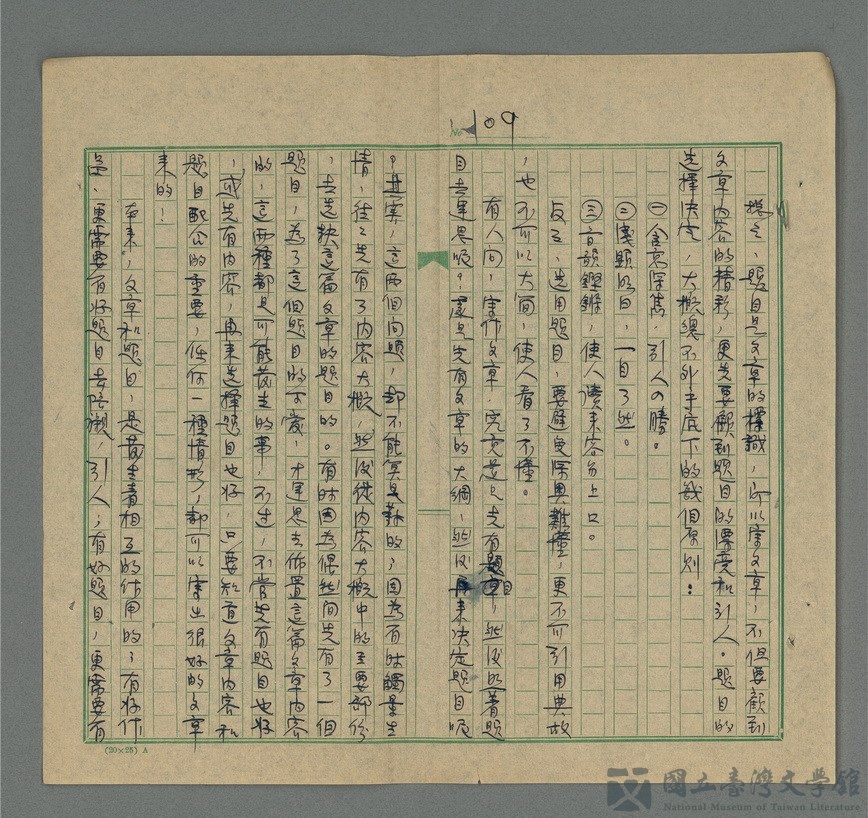 109
No.
總之,題目是文章的標識,所以寫文章,不但要顧到
文章內容的精彩,更先要顧到題目的漂亮和引人。題目的
選擇決定,大概總不外乎底下的幾個原則:
㊀含意深雋,引人入勝。
㊁淺顯明白,一目了然。
㊂音韻鏗鏘,使人讀來容易上口。
反之,選用題目,要避免深奧難懂,更不可引用典故
,也不可以太簡,使人看了不懂。
有人問,寫作文章,究竟是先有題目,然後照著題
目去運思呢?還是先有文章的大綱,然後再來決定題目呢
?其實,這兩個問題,都不能算是難的,因為有時觸景生
情,往往先有了內容大概,然後從內容大概中的主要部份
,去選擇這篇文章的題目的。有時因為偶然間先有了一個
題目,為了這個題目的可愛,才運思去佈置這篇文章內容
的,這兩種都是可能發生的事,不過,不管先有題目也好
,或先有內容,再來選擇題目也好,只要知道文章內容和
題目配合的重要,任何一種情形,都可以寫出很好的文章
來的!
本來,文章和題目,是發生著相互的作用的,有好作
品,更需要有好題目去陪襯,引人,有好題目,更需要有
(20×25) A
國立臺灣文學館
National Museum of Taiwan Literature